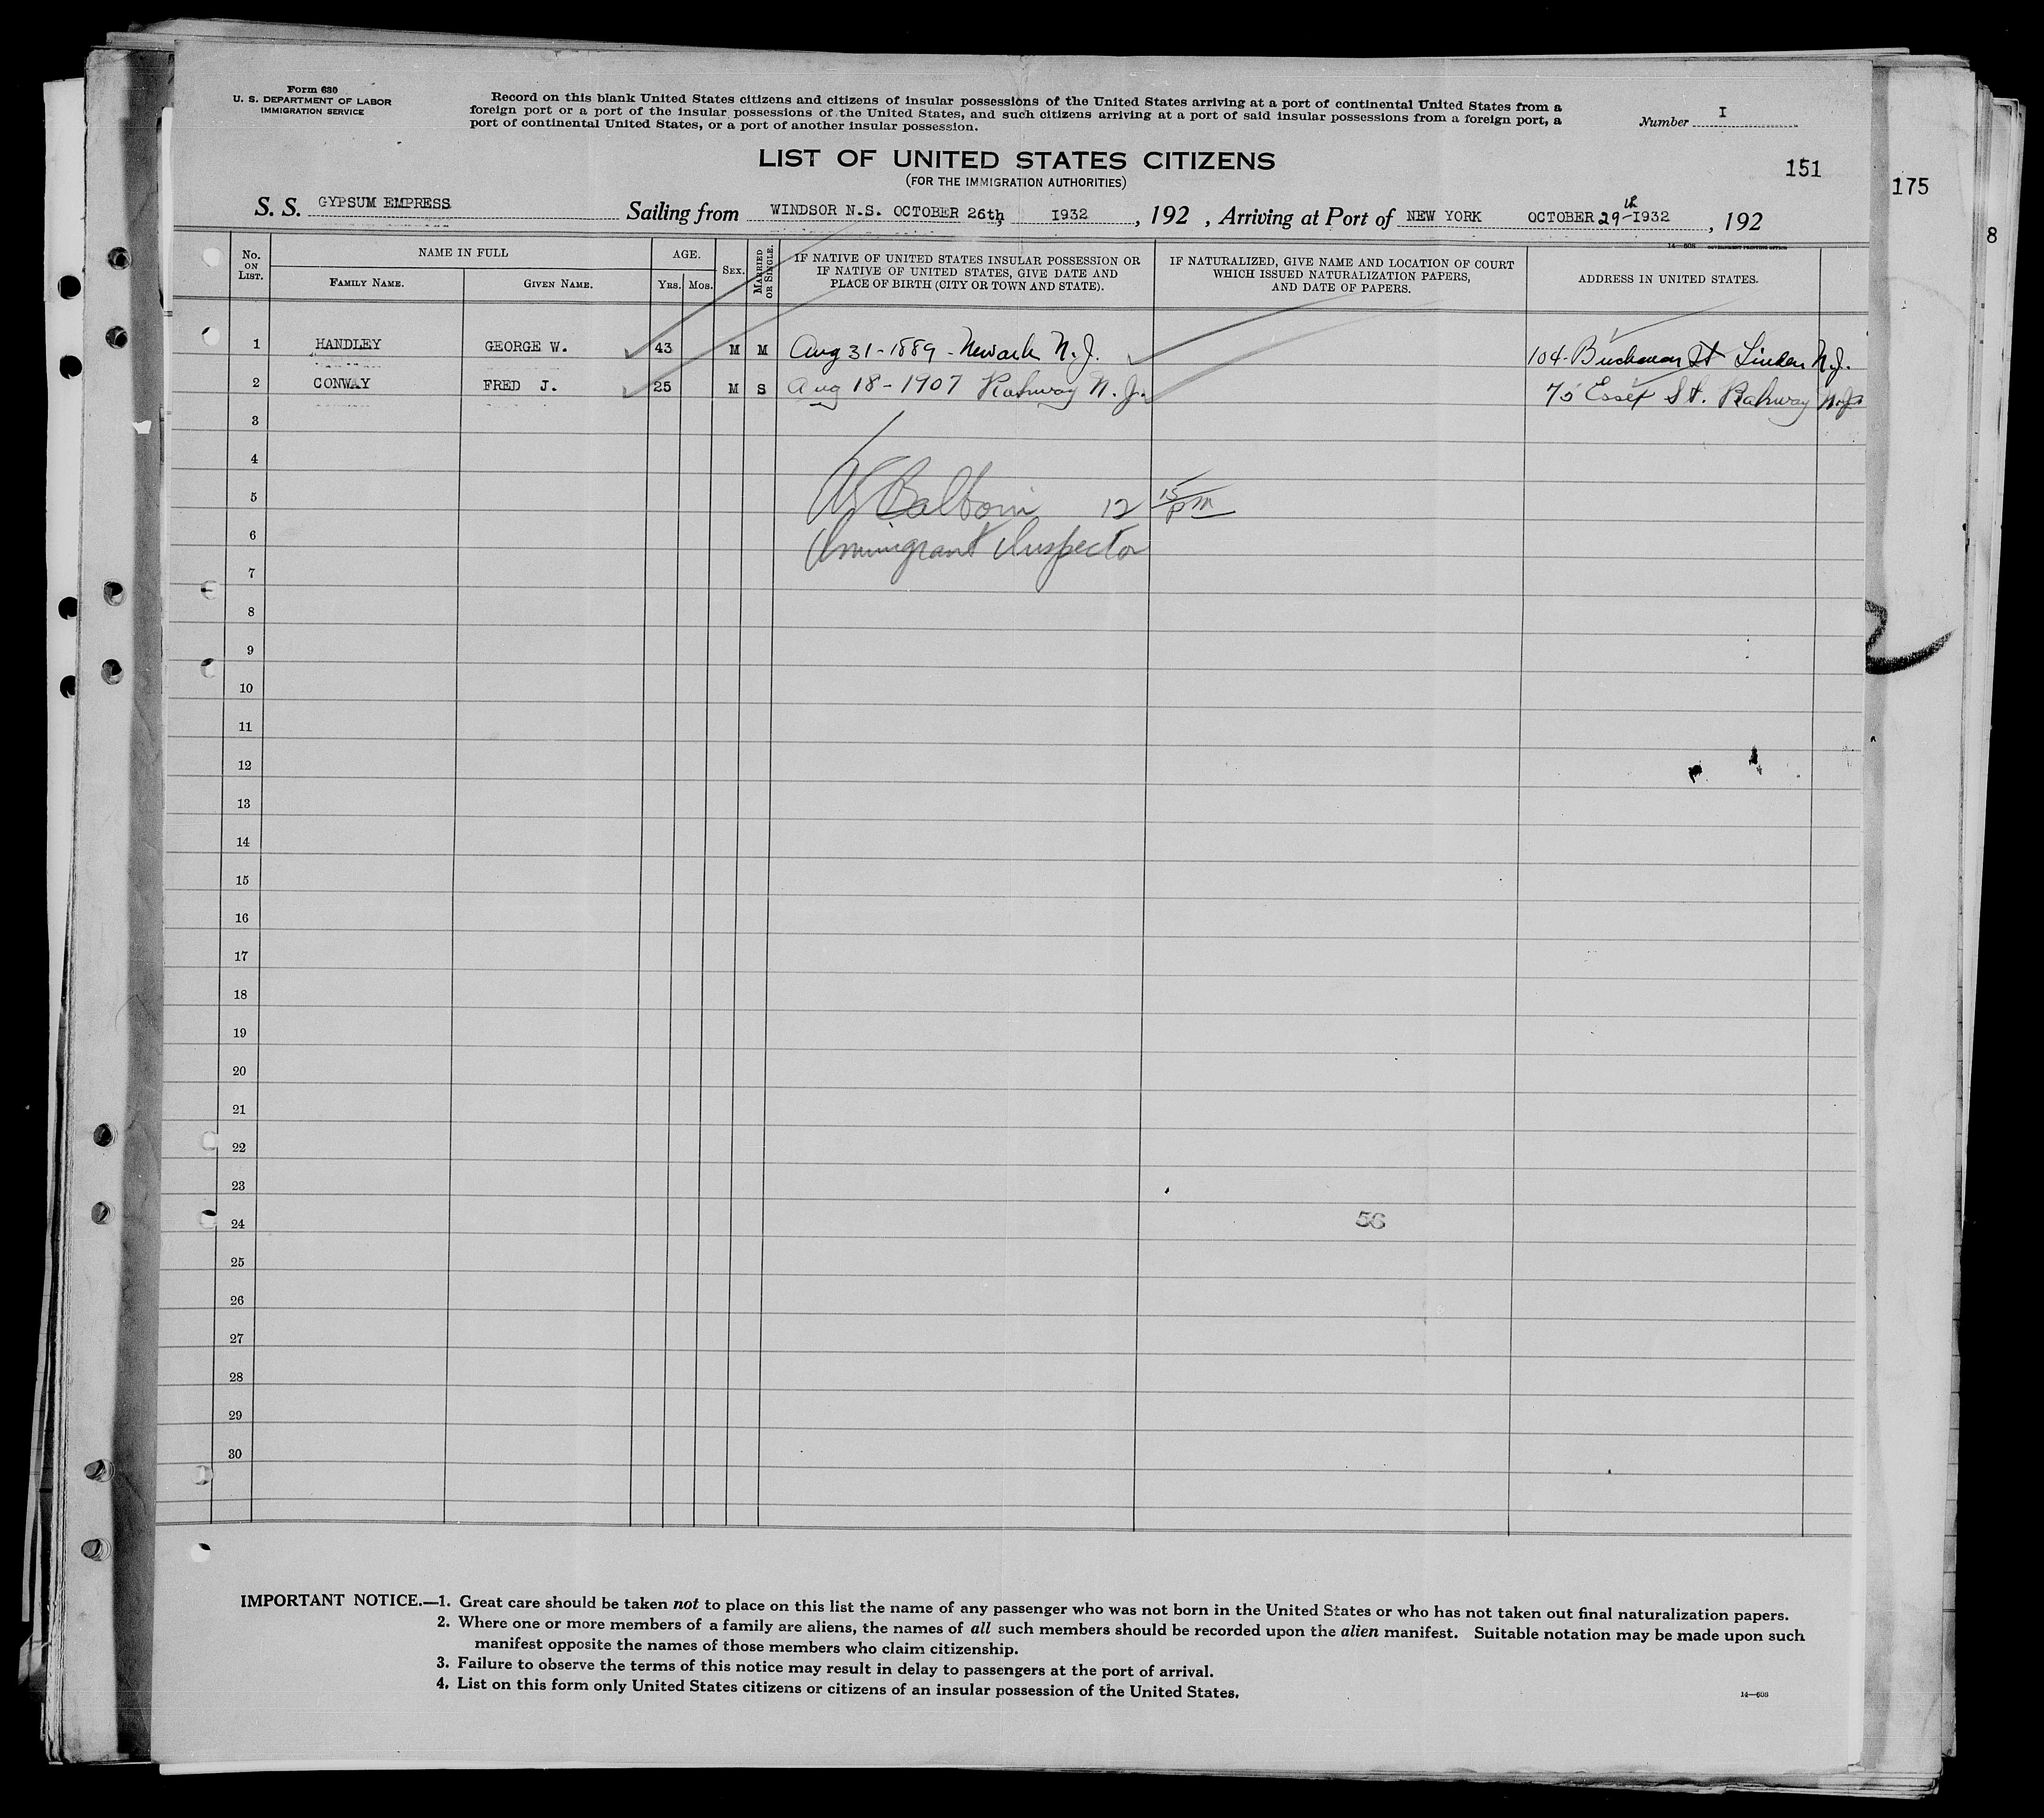 Form 630
U. S. DEPARTMENT OF LABOR
IMMIGRATION SERVICE
Record on this blank United States citizens and citizens of insular possessions of the United States arriving at a port of continental United States from a
foreign port or a port of the insular possessions of the United States, and such citizens arriving at a port of said insular possessions from a foreign port, a
port of continental United States, or a port of another insular possession.
Number I
LIST OF UNITED STATES CITIZENS
(FOR THE IMMIGRATION AUTHORITIES)
151
175
8
S. S. GYPSUM EMPRESS Sailing from WINDSOR N.S. OCTOBER 26th, 1932, 192 , Arriving at Port of NEW YORK OCTOBER 29th-1932, 192
14—608 GOVERNMENT PRINTING OFFICE
No. ON LIST.
NAME IN FULL
FAMILY NAME.
GIVEN NAME.
AGE.
YRS. MOS.
SEX.
MARRIED OR SINGLE.
IF NATIVE OF UNITED STATES INSULAR POSSESSION OR
IF NATIVE OF UNITED STATES, GIVE DATE AND
PLACE OF BIRTH (CITY OR TOWN AND STATE).
IF NATURALIZED, GIVE NAME AND LOCATION OF COURT
WHICH ISSUED NATURALIZATION PAPERS,
AND DATE OF PAPERS.
ADDRESS IN UNITED STATES.
1 HANDLEY GEORGE W. 43 M M Aug 31-1889 - Newark N.J. 104- Buchanan St Linden N.J.
2 CONWAY FRED J. 25 M S Aug 18-1907 Rahway N.J. 75 Essex St. Rahway N.J.
3
4
5 12 15/pm
6 Immigrant Inspector
7
8
9
10
11
12
13
14
15
16
17
18
19
20
21
22
23
24 56
25
26
27
28
29
30
IMPORTANT NOTICE.—1. Great care should be taken not to place on this list the name of any passenger who was not born in the United States or who has not taken out final naturalization papers.
2. Where one or more members of a family are aliens, the names of all such members should be recorded upon the alien manifest. Suitable notation may be made upon such
manifest opposite the names of those members who claim citizenship.
3. Failure to observe the terms of this notice may result in delay to passengers at the port of arrival.
4. List on this form only United States citizens or citizens of an insular possession of the United States.
14—608